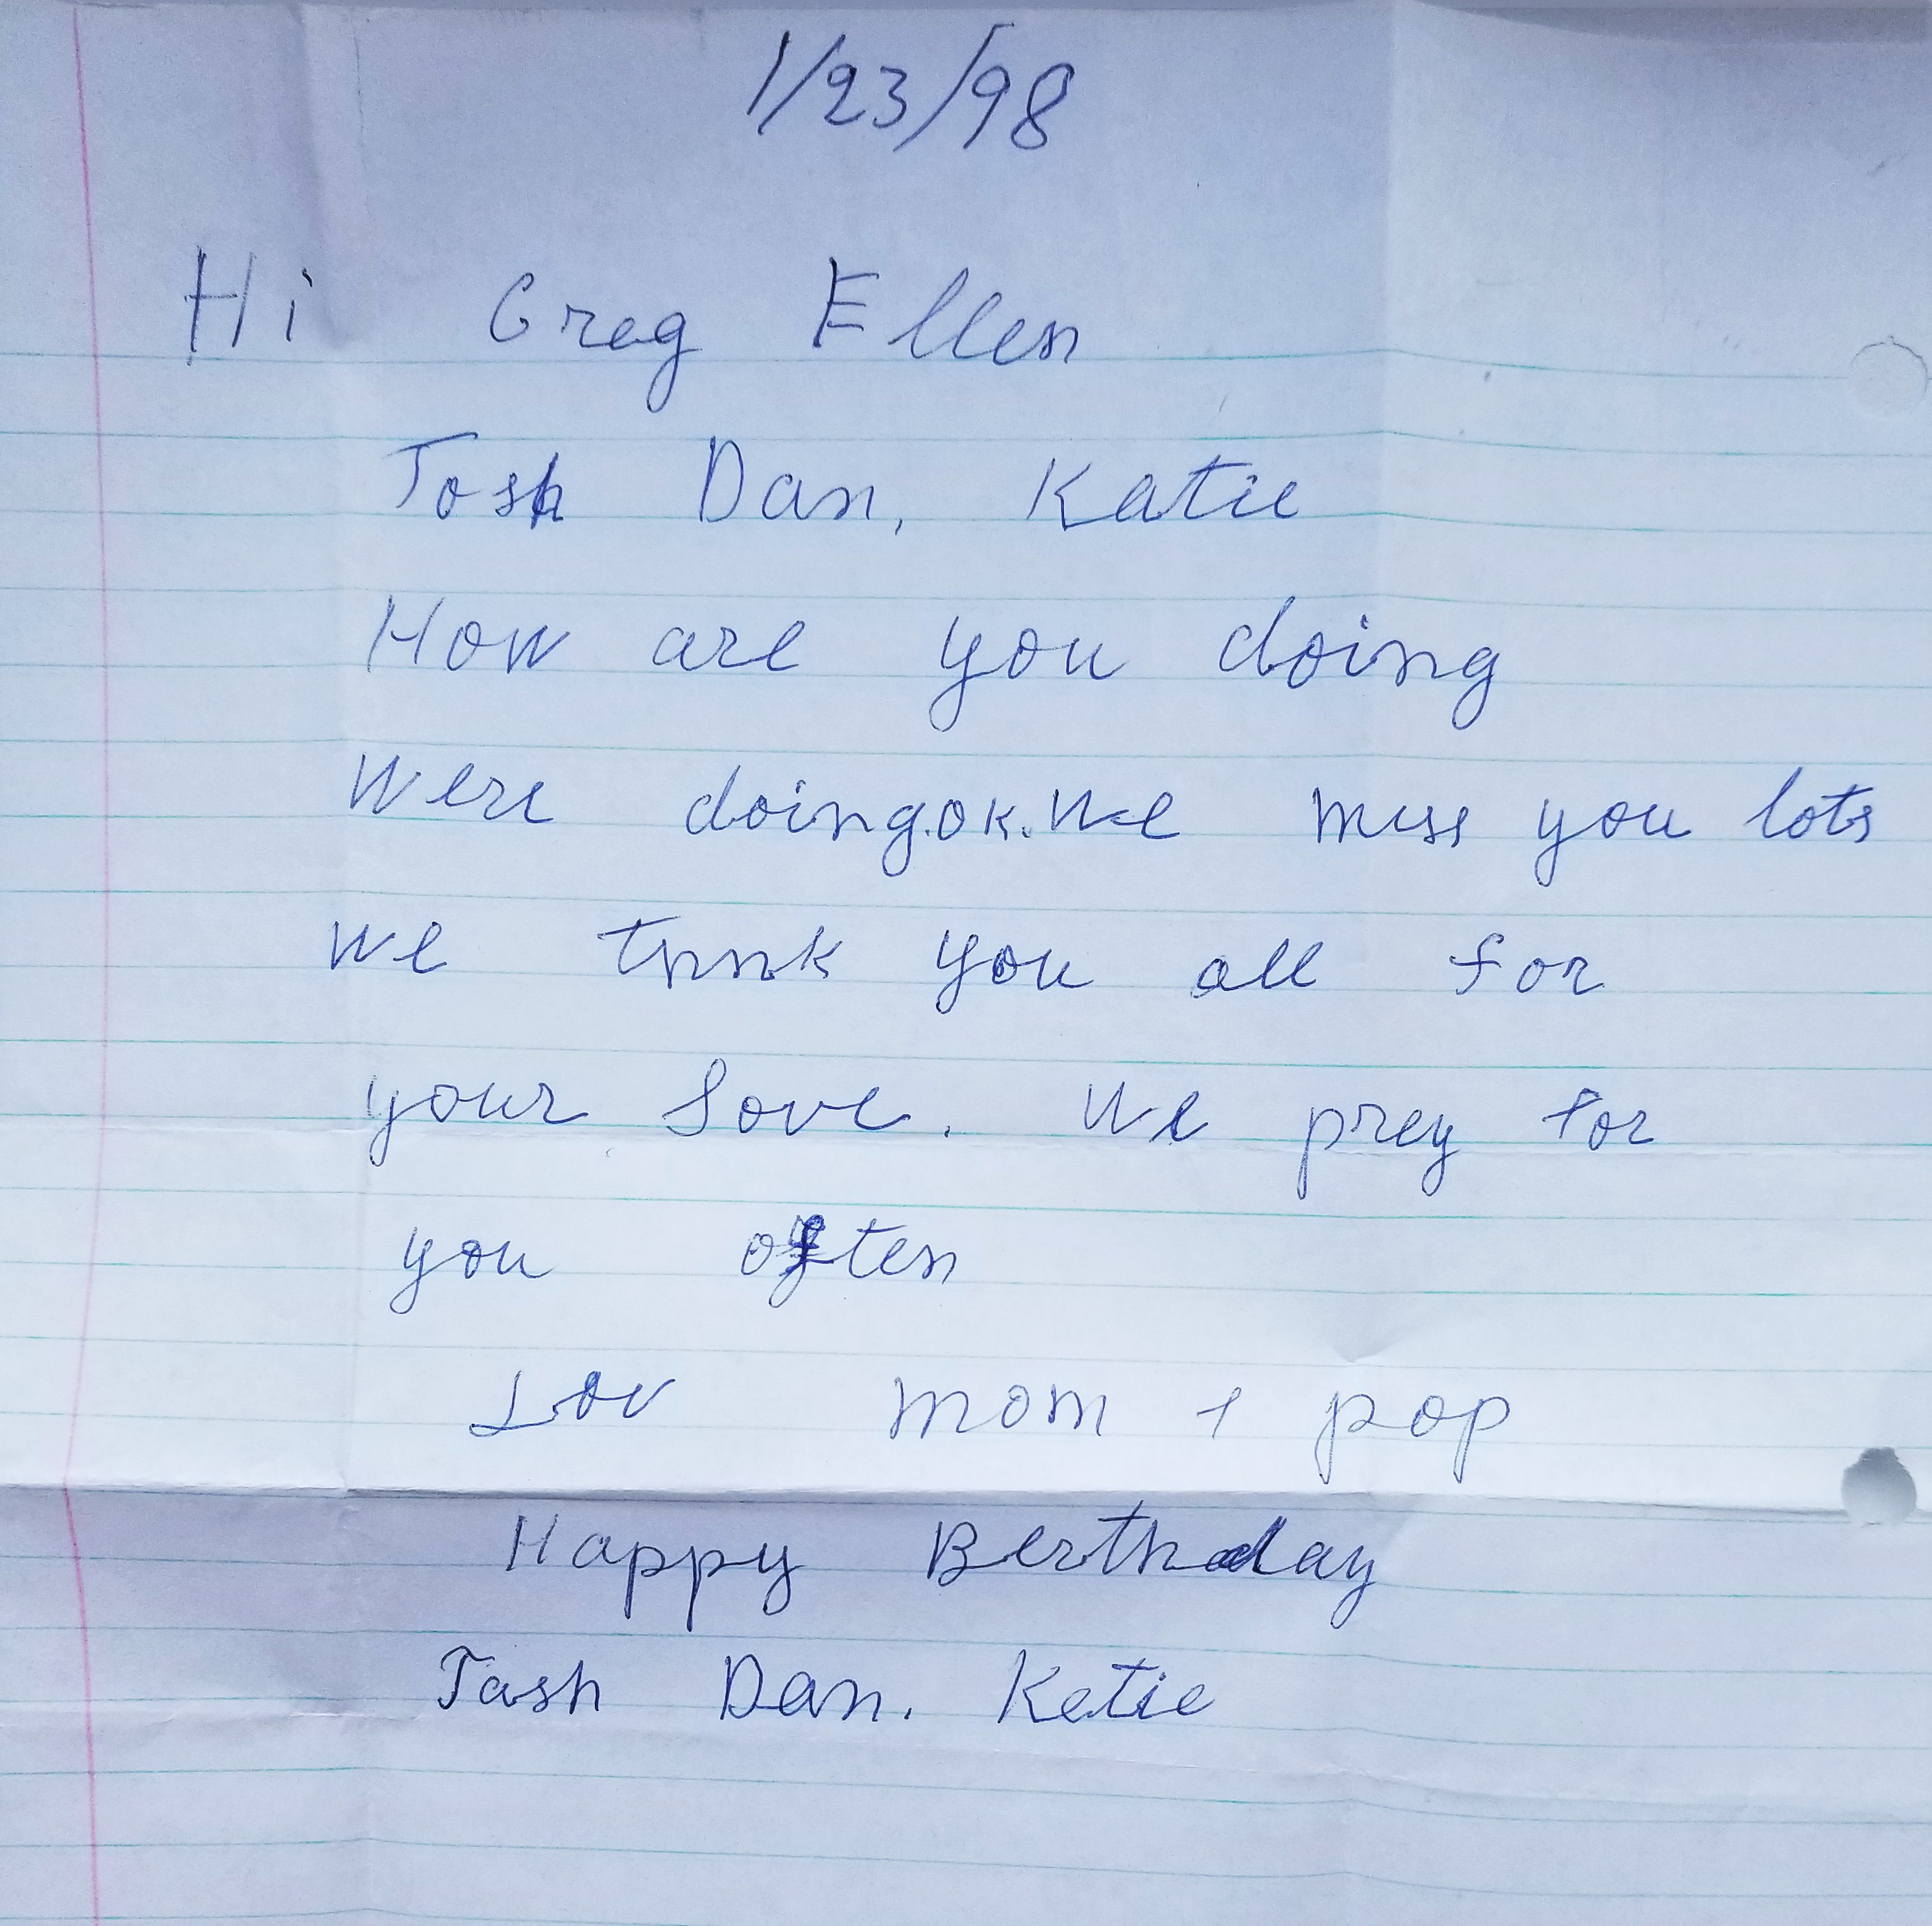 1/23/98
Hi Greg Ellen
Josh Dan, Katie
How are you doing
Were doing.ok.We miss you lots
We thnk you all for
your Love. We prey for
you often
Lov mom + pop
Happy Berthday
Jash Dan. Ketie